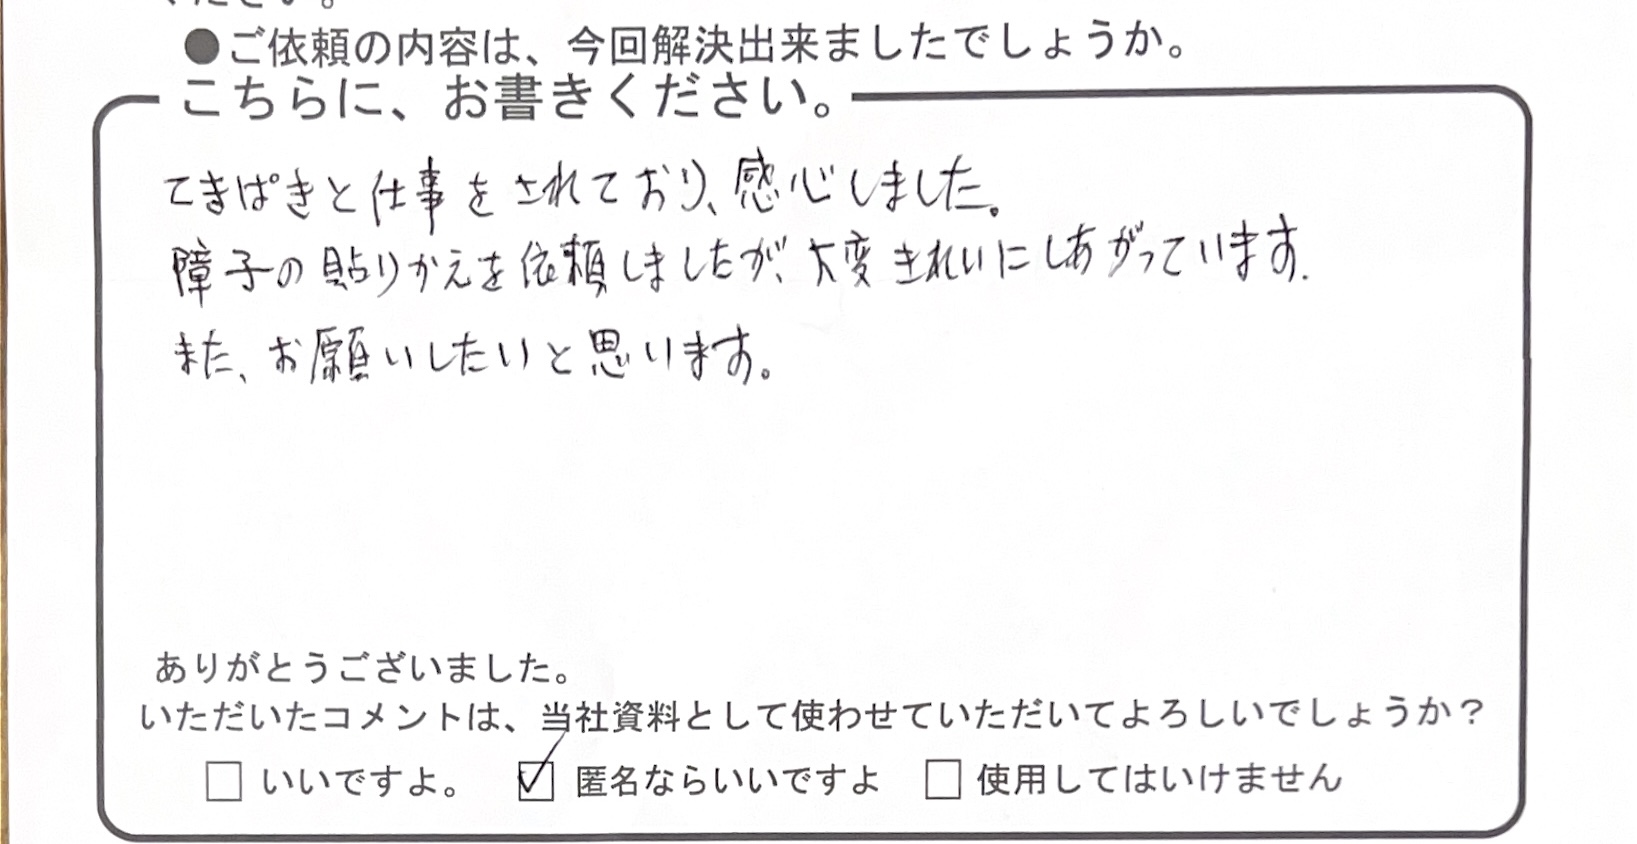 ください。
●ご依頼の内容は、今回解決出来ましたでしょうか。
こちらに、お書きください。
てきぱきと仕事をされており、感心しました。
障子の貼りかえを依頼しましたが、大変きれいにしあがっています.
また、お願いしたいと思います。
ありがとうございました。
いただいたコメントは、当社資料として使わせていただいてよろしいでしょうか？
□ いいですよ。 ☑ 匿名ならいいですよ □ 使用してはいけません